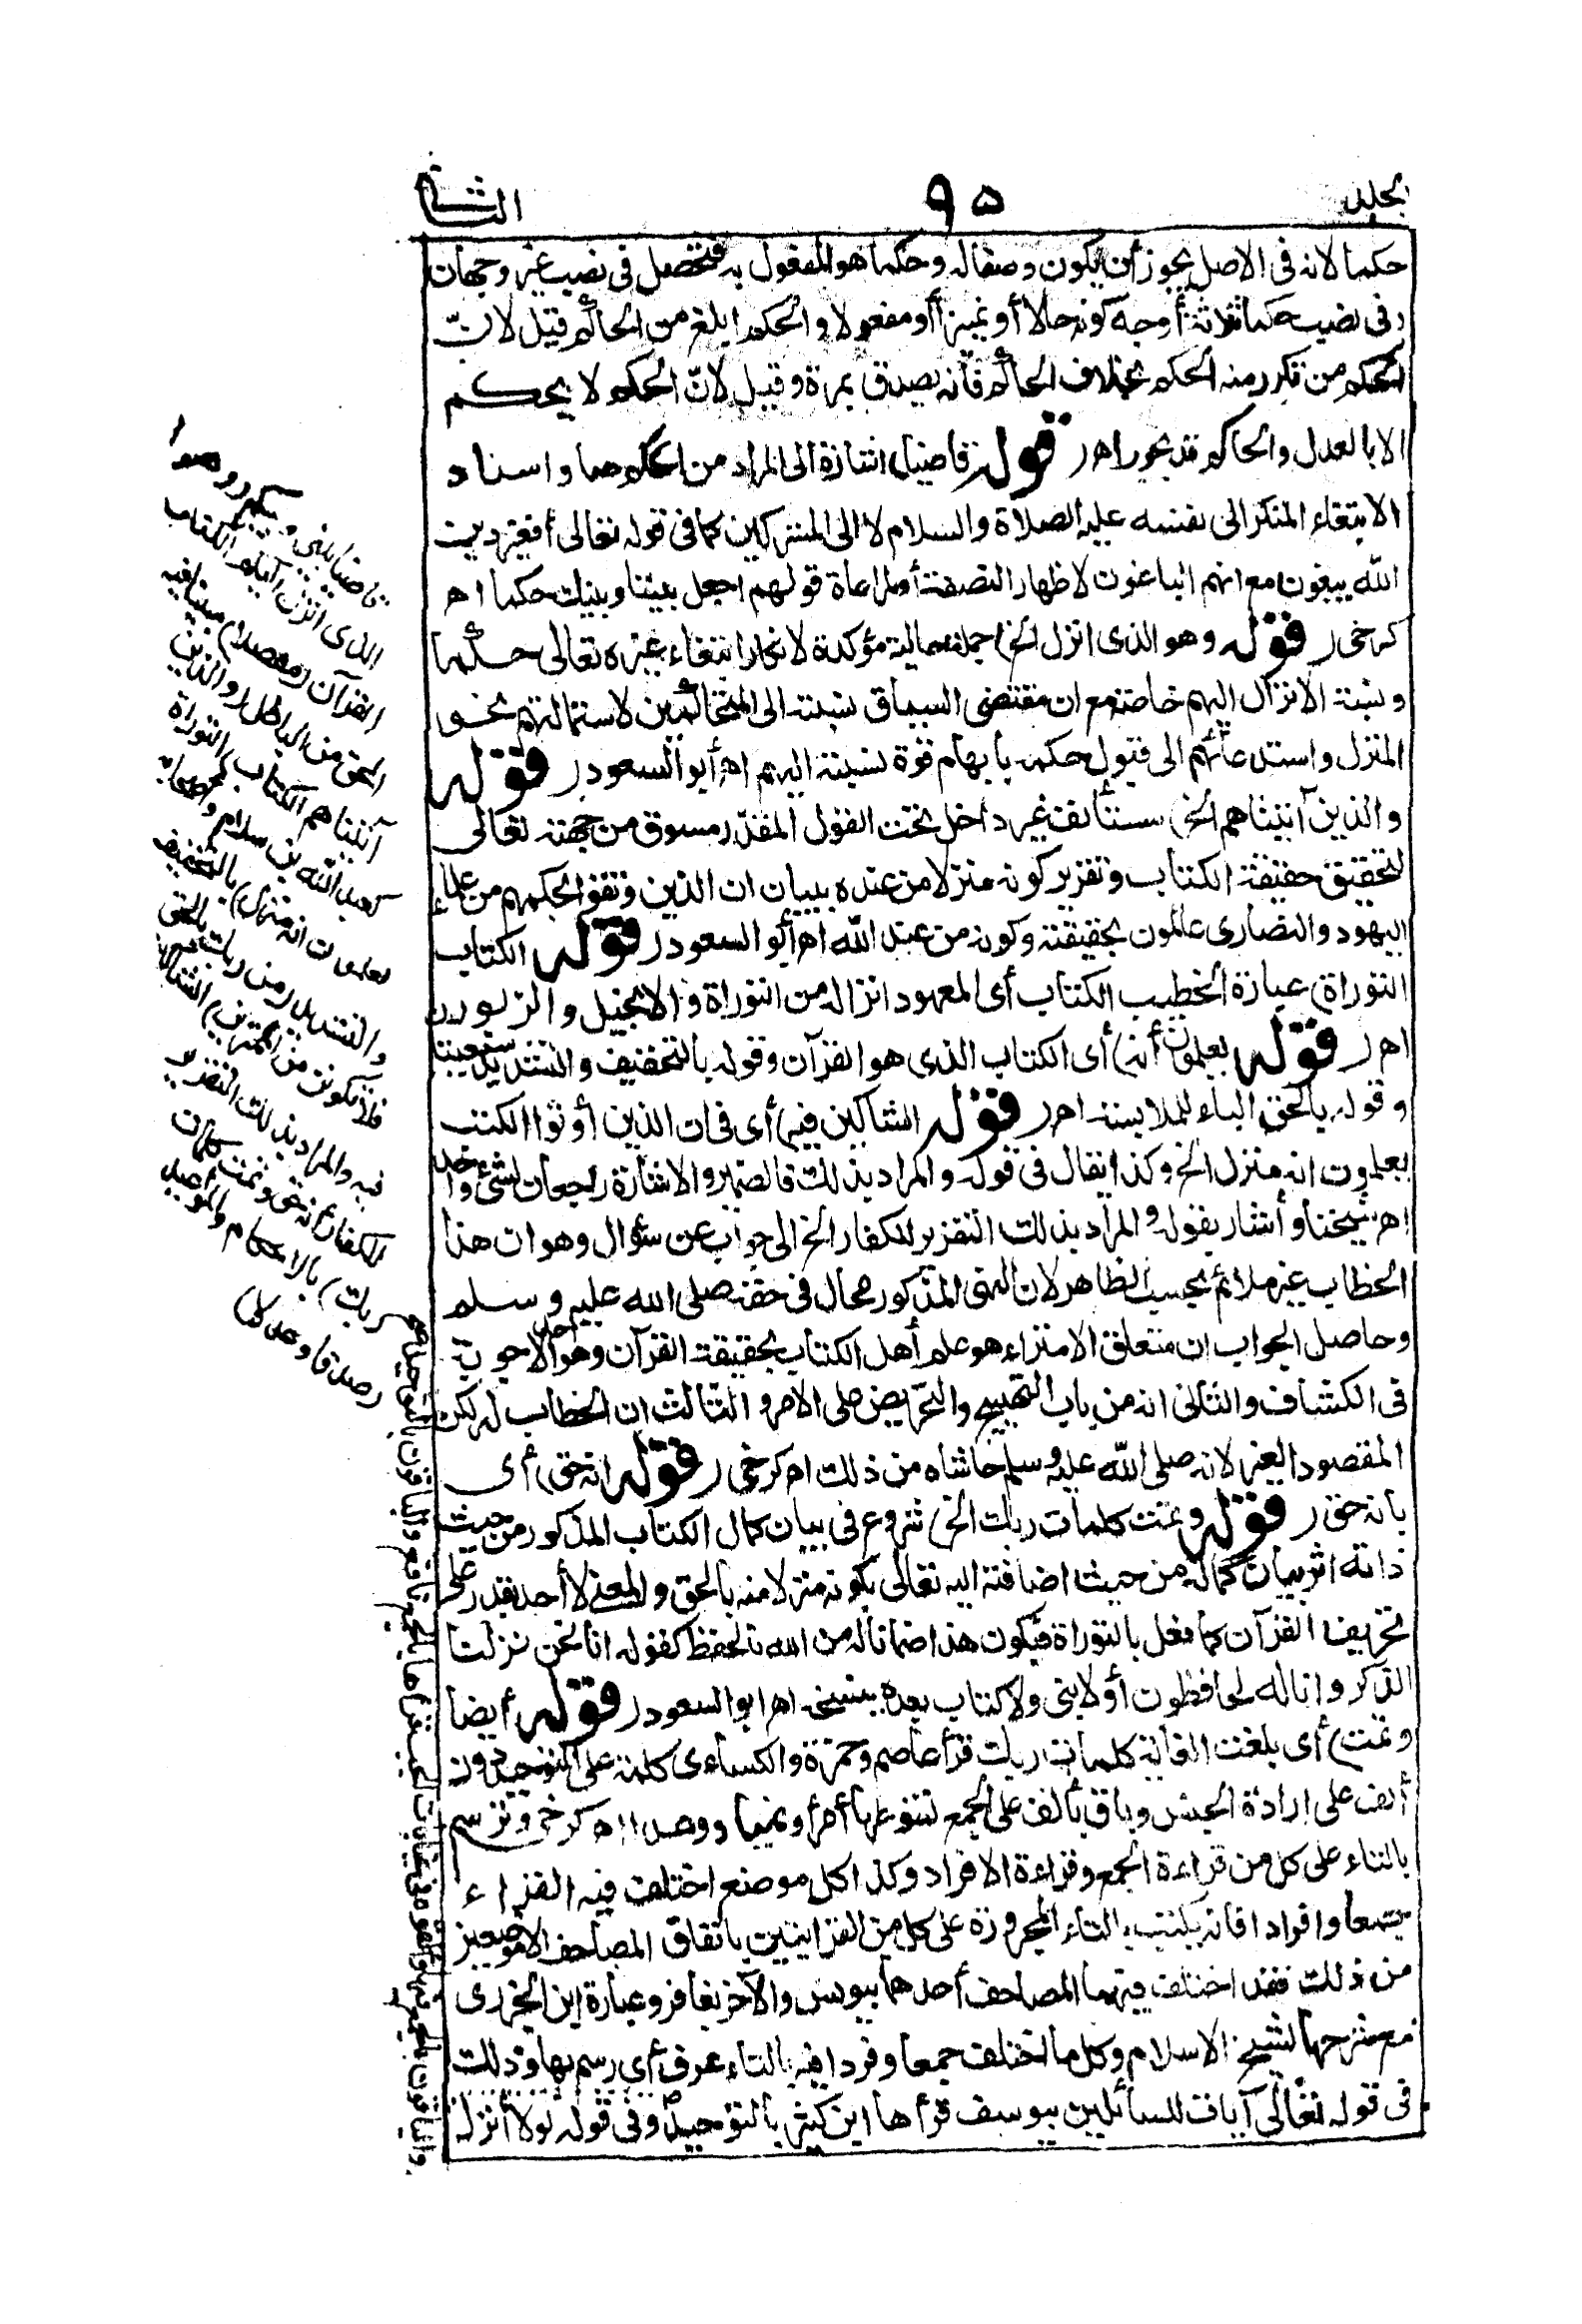 المجلد
٩٥
الثانى
حكما لانه فى الاصل يجوز أن يكون وصفا له وحكما هو المفعول به فتحصل فى نصب غير وجهان
وفى نصب حكما ثلاثة أوجه كونه حالا أو تمييزا أو مفعولا والحكم ابلغ من الحاكم قيل لانّ
الحكم من تكرر منه الحكم بخلاف الحاكم فأنه يصدق بمرة وقيل لانّ الحكم لا يحكم
الا بالعدل والحاكم قد يجور اهـ ( قوله قاضيا) اشارة الى المراد من الحكم هنا واسناد
الابتغاء المنكر الى نفسه عليه الصلاة والسلام لا الى المشركين كما فى قوله تعالى أفغير دين
الله يبغون مع انهم الباغون لاظهار النصفة أو لمراعاة قولهم اجعل بيننا وبينك حكما اهـ
كرخى ( قوله وهو الذى انزل الخ) جملة حالية مؤكدة لانكار ابتغاء غيره تعالى حكما
ونسبة الانزال اليهم خاصة مع ان مقتضى السياق نسبته الى المتحاكمين لاستمالتهم نحو
المنزل واستدعائهم الى قبول حكمه بايهام قوة نسبته اليهم اهـ أبو السعود ( قوله
والذين آتيناهم الخ) مستأنف غير داخل تحت القول المقدّر مسوق من جهته تعالى
لتحقيق حقيقة الكتاب وتقرير كونه منزلا من عنده ببيان ان الذين وثقوا بحكمهم من علماء
اليهود والنصارى عالمون بحقيقته وكونه من عند الله اهـ أبو السعود ( قوله الكتاب
التوراة) عبارة الخطيب الكتاب أى المعهود انزاله من التوراة والانجيل والزبور
اهـ ( قوله يعلمون أنه) أى الكتاب الذى هو القرآن وقوله بالتخفيف والتشديد سبعيتان
وقوله بالحق الباء للملابسة اهـ ( قوله الشاكين فيه) أى فى ان الذين أوتوا الكتب
يعلمون انه منزل الخ وكذا يقال فى قوله والمراد بذلك فالضمير والاشارة راجعان لشئ واحد
اهـ شيخنا وأشار بقوله والمراد بذلك التقرير للكفار الخ الى جواب عن سؤال وهو ان هذا
الخطاب غير ملائم بحسب الظاهر لان النهى المذكور محال فى حقه صلى الله عليه وسلم
وحاصل الجواب ان متعلق الامتراء هو علم أهل الكتاب بحقيقة القرآن وهو احد الاجوبة
فى الكشاف والثانى انه من باب التهييج والتحريض على الامر والثالث ان الخطاب له لكن
المقصود الغير لانه صلى الله عليه وسلم حاشاه من ذلك اهـ كرخى ( قوله انه حق) أى
بانه حق ( قوله وتمت كلمات ربك الخ) شروع فى بيان كمال الكتاب المذكور من حيث
ذاته اثر بيان كماله من حيث اضافته اليه تعالى بكونه منزلا منه بالحق والمعنى لا أحد يقدر على
تحريف القرآن كما فعل بالتوراة فيكون هذا ضمانا له من الله بالحفظ كقوله انا نحن نزلنا
الذكر وانا له لحافظون أو لا نبى ولا كتاب بعده ينسخه اهـ ابو السعود ( قوله أيضا
وتمت) أى بلغت الغاية كلمات ربك قرأ عاصم وحمزة والكسائى كلمة على التوحيد دون
ألف على ارادة الجنس وباقى بألف على الجمع لتنوعها أمرا ونهيا ووعدا اهـ كرخى وترسم
بالتاء على كل من قراءة الجمع وقراءة الافراد وكذا كل موضع اختلف فيه القراء
جمعا وافرادا فانه يكتب بالتاء المجرورة على كل من القراءتين باتفاق المصاحف الا موضعين
من ذلك فقد اختلف فيهما المصاحف أحدهما بيونس والآخر بغافر وعبارة ابن الجزرى
مع شرحها لشيخ الاسلام وكل ما اختلف جمعا وفردا فيه بالتاء عرف أى رسم بها وذلك
فى قوله تعالى آيات للسائلين بيوسف قرأها ابن كثير بالتوحيد وفى قوله لولا أنزل
قاضيا بينى وبينكم (وهو
الذى انزل اليكم الكتاب
القرآن (مفصلا) مبينا فيه
الحق من الباطل (والذين
آتيناهم الكتاب) التوراة
كعبد الله بن سلام واصحابه
يعلمون انه منزل) بالتخفيف
والتشديد (من ربك بالحق
فلا تكونن من الممترين) الشاكين
فيه والمراد بذلك التقرير
للكفار أنه حق وتمت كلمات
ربك) بالاحكام والمواعيد
(صدقا وعدلا)